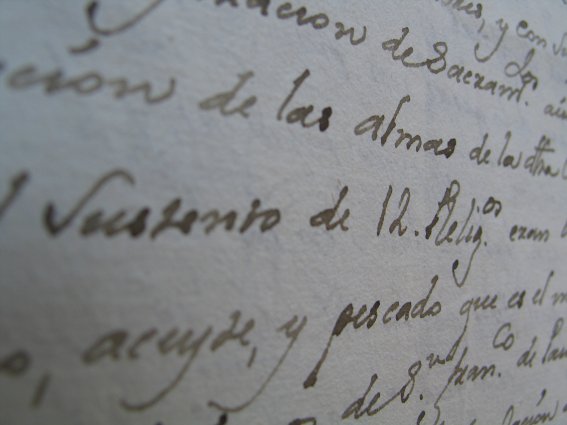 y con
de Sacram.tos
ción de las almas de la otra
Sustento de 12. Relig.os eran
aceyte, y pescado que es el
de S.n Fran.co de